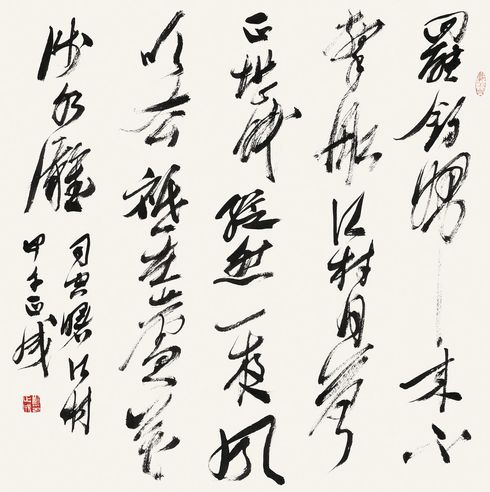 罷釣歸來不
繫船江村月落
正堪眠縱然一夜風
吹去祇在蘆花
淺水邊
司空曙江村
甲午正